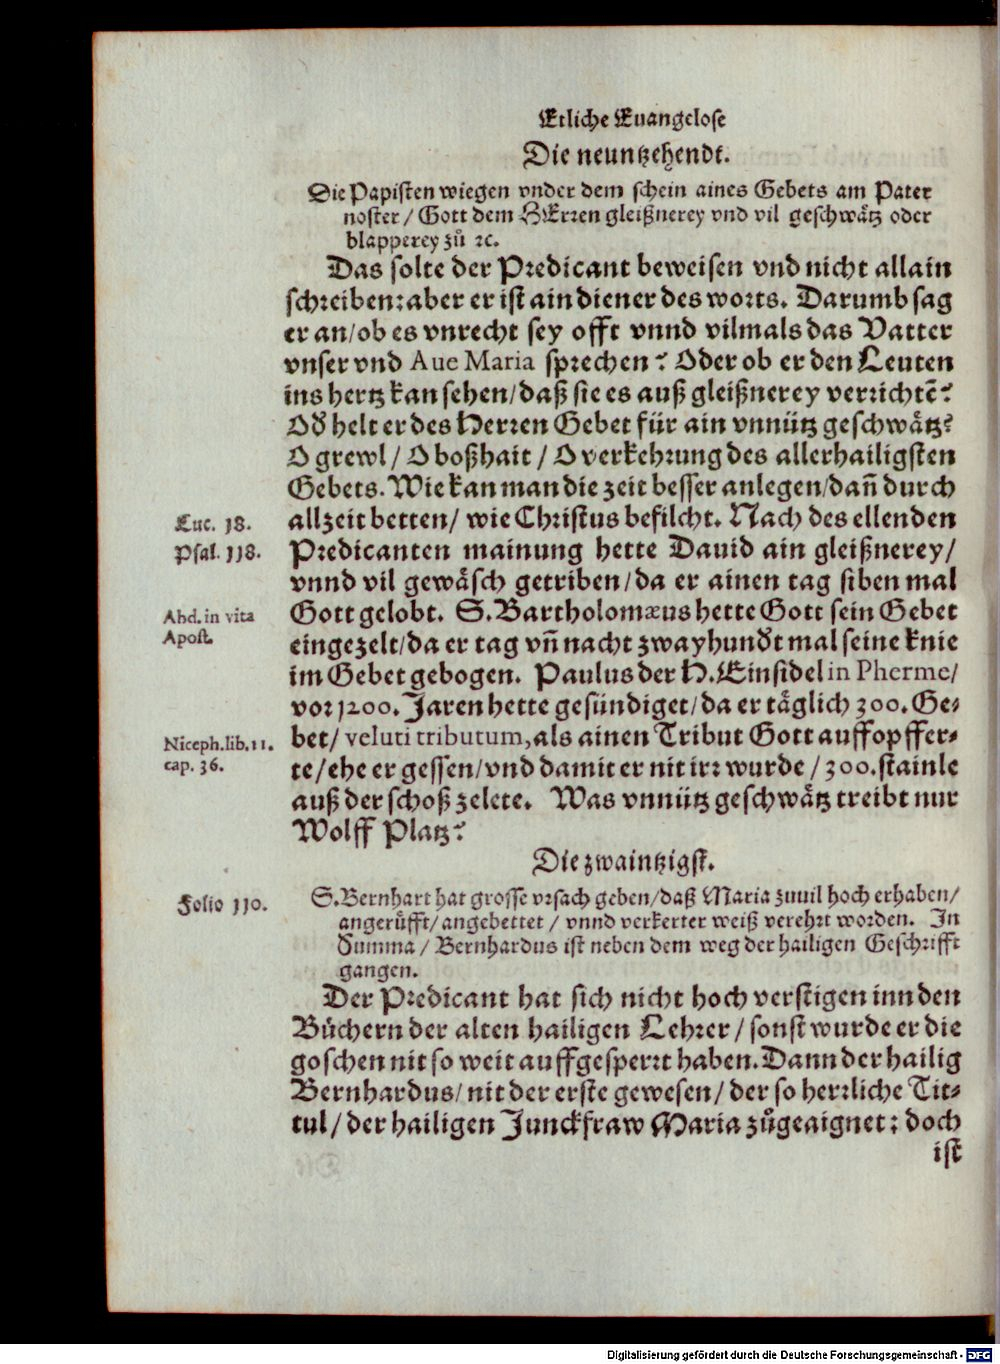 Etliche Euangelose
Die neuntzehendt.
Die Papisten wiegen vnder dem schein aines Gebets am Pater
noster / Gott dem HErren gleißnerey vnd vil geschwätz oder
blapperey zů ꝛc.
Das solte der Predicant beweisen vnd nicht allain
schreiben: aber er ist ain diener des worts. Darumb sag
er an/ ob es vnrecht sey offt vnnd vilmals das Vatter
vnser vnd Aue Maria sprechen? Oder ob er den Leuten
ins hertz kan sehen/ daß sie es auß gleißnerey verrichtē?
Oď helt er des Herren Gebet für ain vnnütz geschwätz?
O grewl / O boßhait / O verkehrung des allerhailigsten
Gebets. Wie kan man die zeit besser anlegen/ dañ durch
Luc. 18. allzeit betten/ wie Christus befilcht. Nach des ellenden
Psal. 118. Predicanten mainung hette Dauid ain gleißnerey/
vnnd vil gewäsch getriben/ da er ainen tag siben mal
Abd. in vita Gott gelobt. S. Bartholomæus hette Gott sein Gebet
Apost. eingezelt/ da er tag vñ nacht zwayhunďt mal seine knie
im Gebet gebogen. Paulus der H. Einsidel in Pherme/
vor 1200. Jaren hette gesündiget/ da er täglich 300. Ge-
Niceph. lib. 11. bet/ veluti tributum, als ainen Tribut Gott auffopffer-
cap. 36. te/ ehe er gessen/ vnd damit er nit irr wurde / 300. stainle
auß der schoß zelete. Was vnnütz geschwätz treibt nur
Wolff Platz?
Die zwaintzigst.
Folio 110. S. Bernhart hat grosse vrsach geben/ daß Maria zuuil hoch erhaben/
angerůfft/ angebettet / vnnd verkerter weiß verehrt worden. In
Summa / Bernhardus ist neben dem weg der hailigen Geschrifft
gangen.
Der Predicant hat sich nicht hoch verstigen inn den
Bůchern der alten hailigen Lehrer / sonst wurde er die
goschen nit so weit auffgesperrt haben. Dann der hailig
Bernhardus/ nit der erste gewesen/ der so herrliche Tit-
tul / der hailigen Junckfraw Maria zůgeaignet: doch
ist
Digitalisierung gefördert durch die Deutsche Forschungsgemeinschaft - DFG